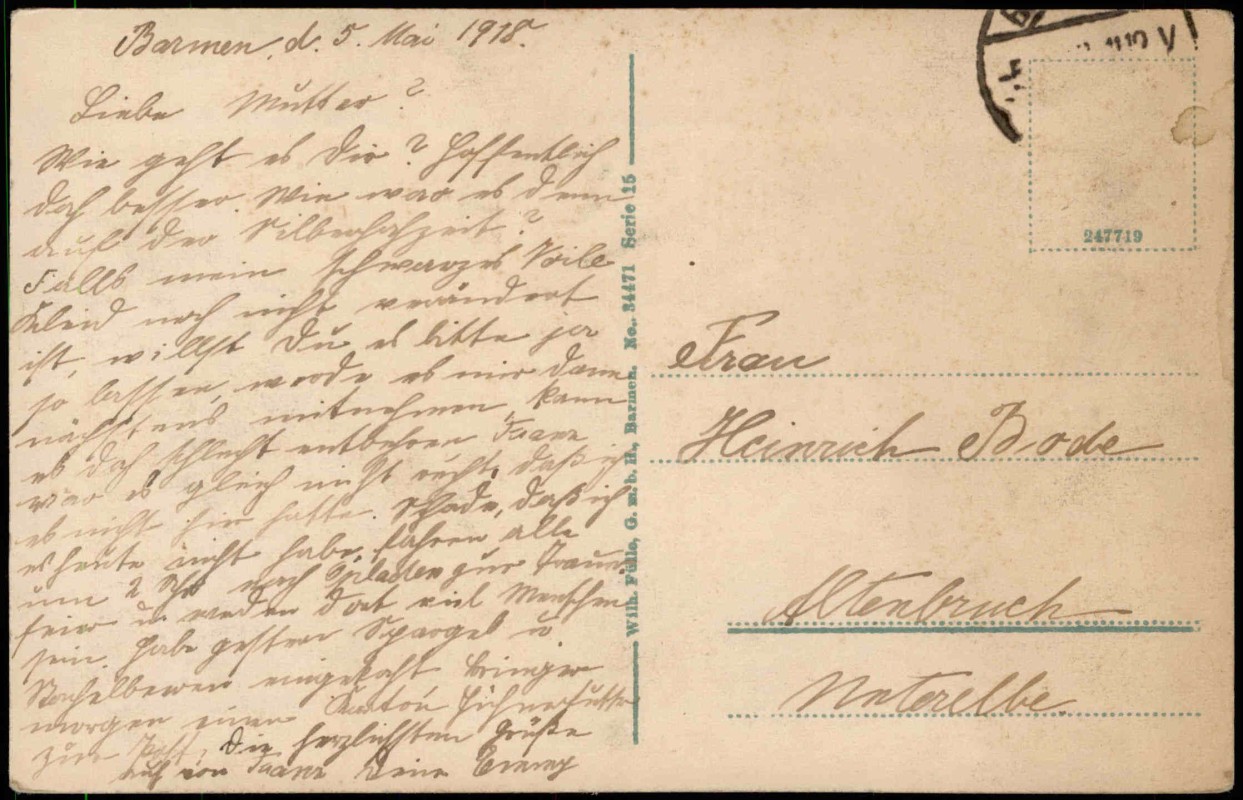 Barmen, d. 5. Mai 1918.
Liebe Mutter?
Wie geht es Dir? Hoffentlich
doch besser. Wie war es denn
auf der Silberhochzeit?
Falls mein schwarzes Voile
Kleid noch nicht verändert
ist, willst Du es bitte ja
so lassen, werde es mir dann
nächstens mitnehmen, kann
es doch schlecht entbehren Franz
war es gleich nicht recht, daß ich
es nicht hier hatte. Schade, daß ich
es heute nicht habe, fahren alle
um 2 Uhr nach Opladen zur Trauer
feier u. werden dort viel Menschen
sein. Habe gestern Spargel u.
Stachelbeeren eingekocht bringe
morgen einen Karton Hühnerfutter
zur Post. Die herzlichsten Grüße
auch von Franz Deine Emmy
Wilh. Fülle, G. m. b. H., Barmen. No. 34471 Serie 15
247719
Frau
Heinrich Bode
Altenbruch
Unterelbe.